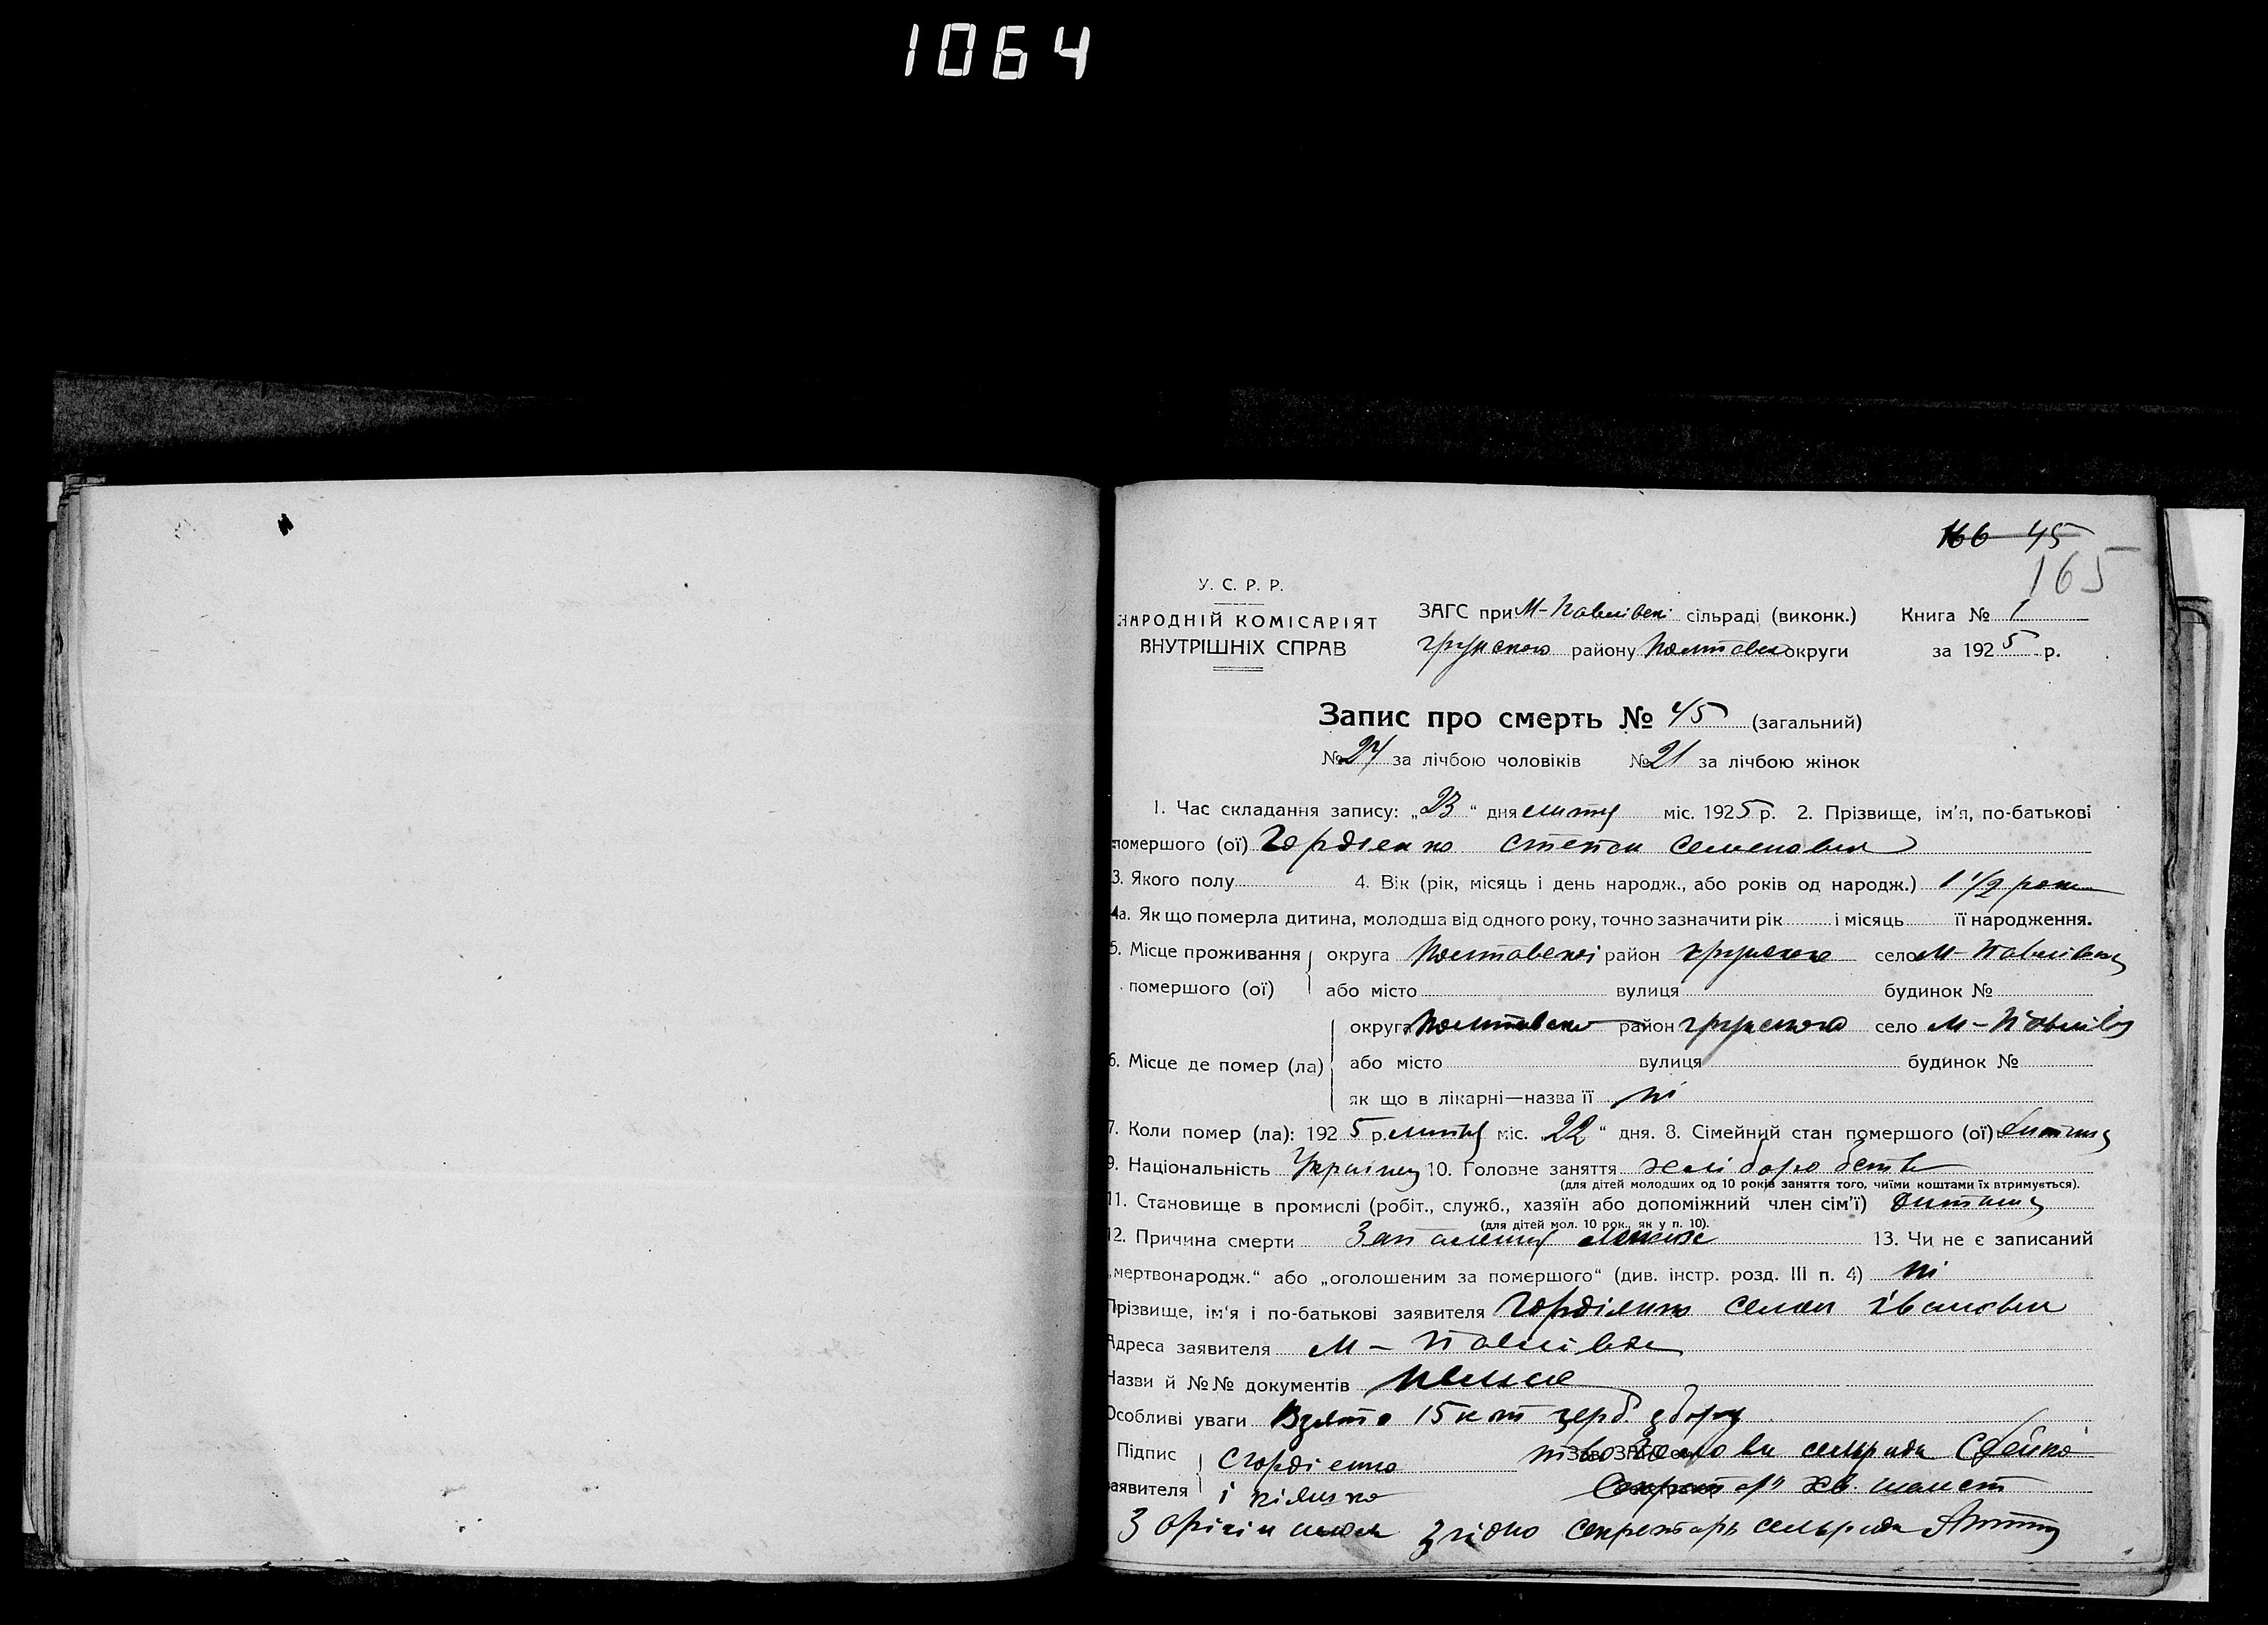 1064
166 45
165
У. С. Р. Р.
НАРОДНІЙ КОМІСАРІЯТ
ВНУТРІШНІХ СПРАВ
ЗАГС при М-Павлівск. сільраді (виконк.) Книга № 1
грунського району Полтавської округи за 1925 р.
Запис про смерть № 45 (загальний)
№ 24 за лічбою чоловіків № 21 за лічбою жінок
1. Час складання запису: „23“ дня лютня міс. 1925 р. 2. Прізвище, ім'я, по-батькові
помершого (ої) Гордіенко Степан Семенович
3. Якого полу 4. Вік (рік, місяць і день народж., або років од народж.) 1 1/2 роки
4а. Як що померла дитина, молодша від одного року, точно зазначити рік і місяць її народження.
5. Місце проживання округа Полтавскоі район грунского село М-Павлівка
помершого (ої) або місто вулиця будинок №
округа Полтавско район грунского село М-Павлів
6. Місце де помер (ла) або місто вулиця будинок №
як що в лікарні—назва її ні
7. Коли помер (ла): 1925 р. лютня міс. „22“ дня. 8. Сімейний стан помершого (ої) дитина
9. Національність Українец 10. Головне заняття хліборобств
(для дітей молодших од 10 років заняття того, чиїми коштами їх втримується).
11. Становище в промислі (робіт., служб., хазяїн або допоміжний член сім'ї) дитина
(для дітей мол. 10 рок., як у п. 10).
12. Причина смерти Запалення легких 13. Чи не є записаний
„мертвонародж.“ або „оголошеним за помершого“ (див. інстр. розд. III п. 4) ні
Прізвище, ім'я і по-батькові заявителя Гордіенко Семен Іванович
Адреса заявителя М-Павлівка
Назви й №№ документів немає
Особливі уваги Взято 15 коп герб. збору
Підпис С Гордіенко голови сельради
заявителя Секретарь
З оригіналом згідно секретарь сельради